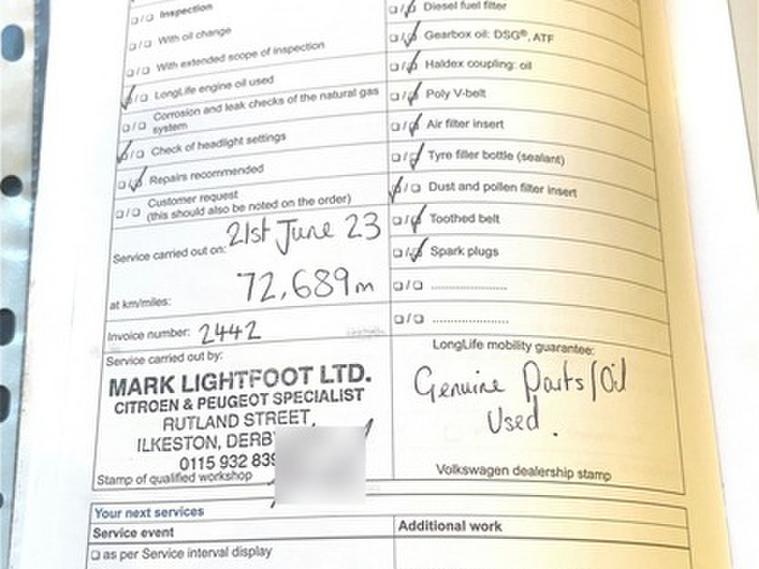 Inspection
With oil change
With extended scope of inspection
LongLife engine oil used
Corrosion and leak checks of the natural gas
system
Check of headlight settings
Repairs recommended
Customer request
(this should also be noted on the order)
Service carried out on: 21st June 23
at km/miles: 72,689m
Invoice number: 2442
Service carried out by:
MARK LIGHTFOOT LTD.
CITROEN & PEUGEOT SPECIALIST
RUTLAND STREET,
ILKESTON, DERB
0115 932 839
Stamp of qualified workshop
Diesel fuel filter
Gearbox oil: DSG®, ATF
Haldex coupling: oil
Poly V-belt
Air filter insert
Tyre filler bottle (sealant)
Dust and pollen filter insert
Toothed belt
Spark plugs
LongLife mobility guarantee:
Genuine Parts/Oil
Used.
Volkswagen dealership stamp
Your next services
Service event
Additional work
as per Service interval display